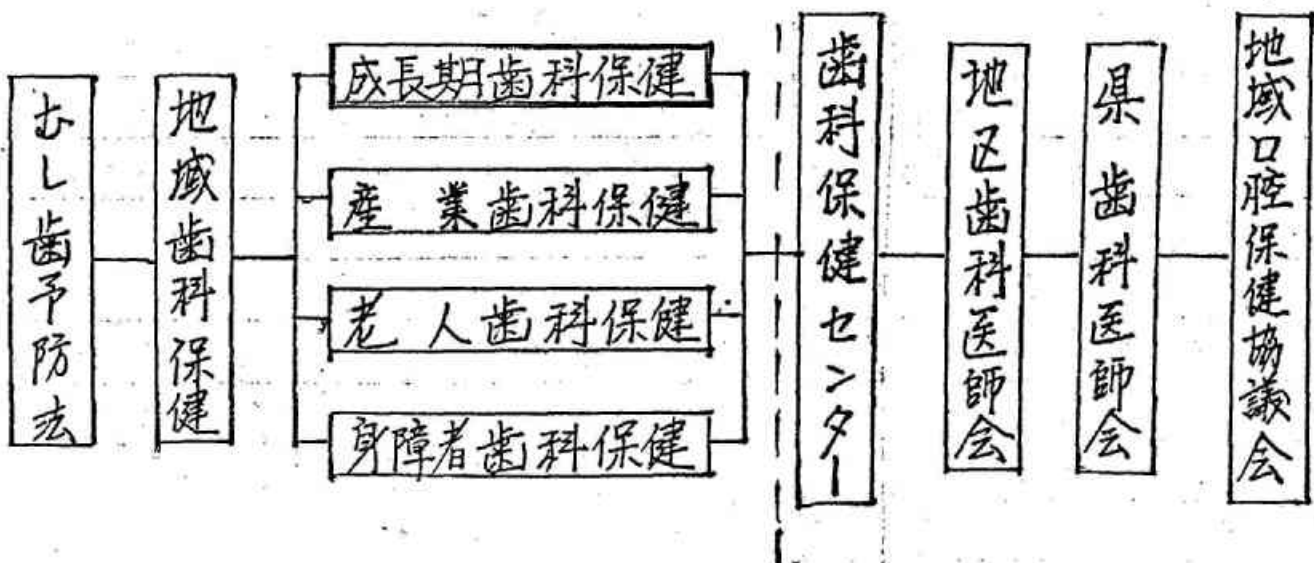 むし歯予防法
地域歯科保健
成長期歯科保健
産業歯科保健
老人歯科保健
身障者歯科保健
歯科保健センター
地区歯科医師会
県歯科医師会
地域口腔保健協議会